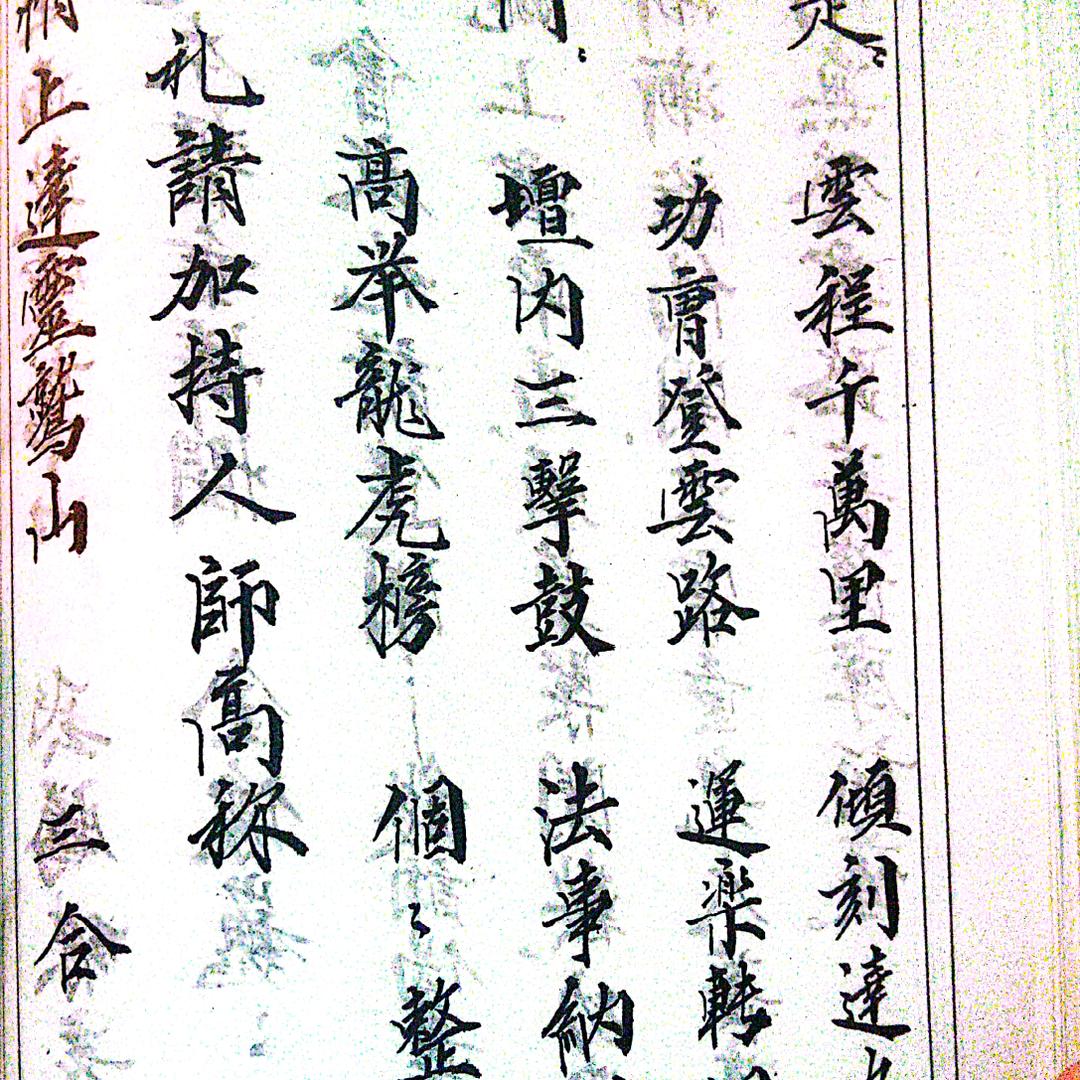 雲程千萬里 傾刻達
功曹登雲路 運楽転
壇内三擊鼓 法事納
高举龍虎榜 個々整
礼請加持人師高称
上達靈鷲山 三合